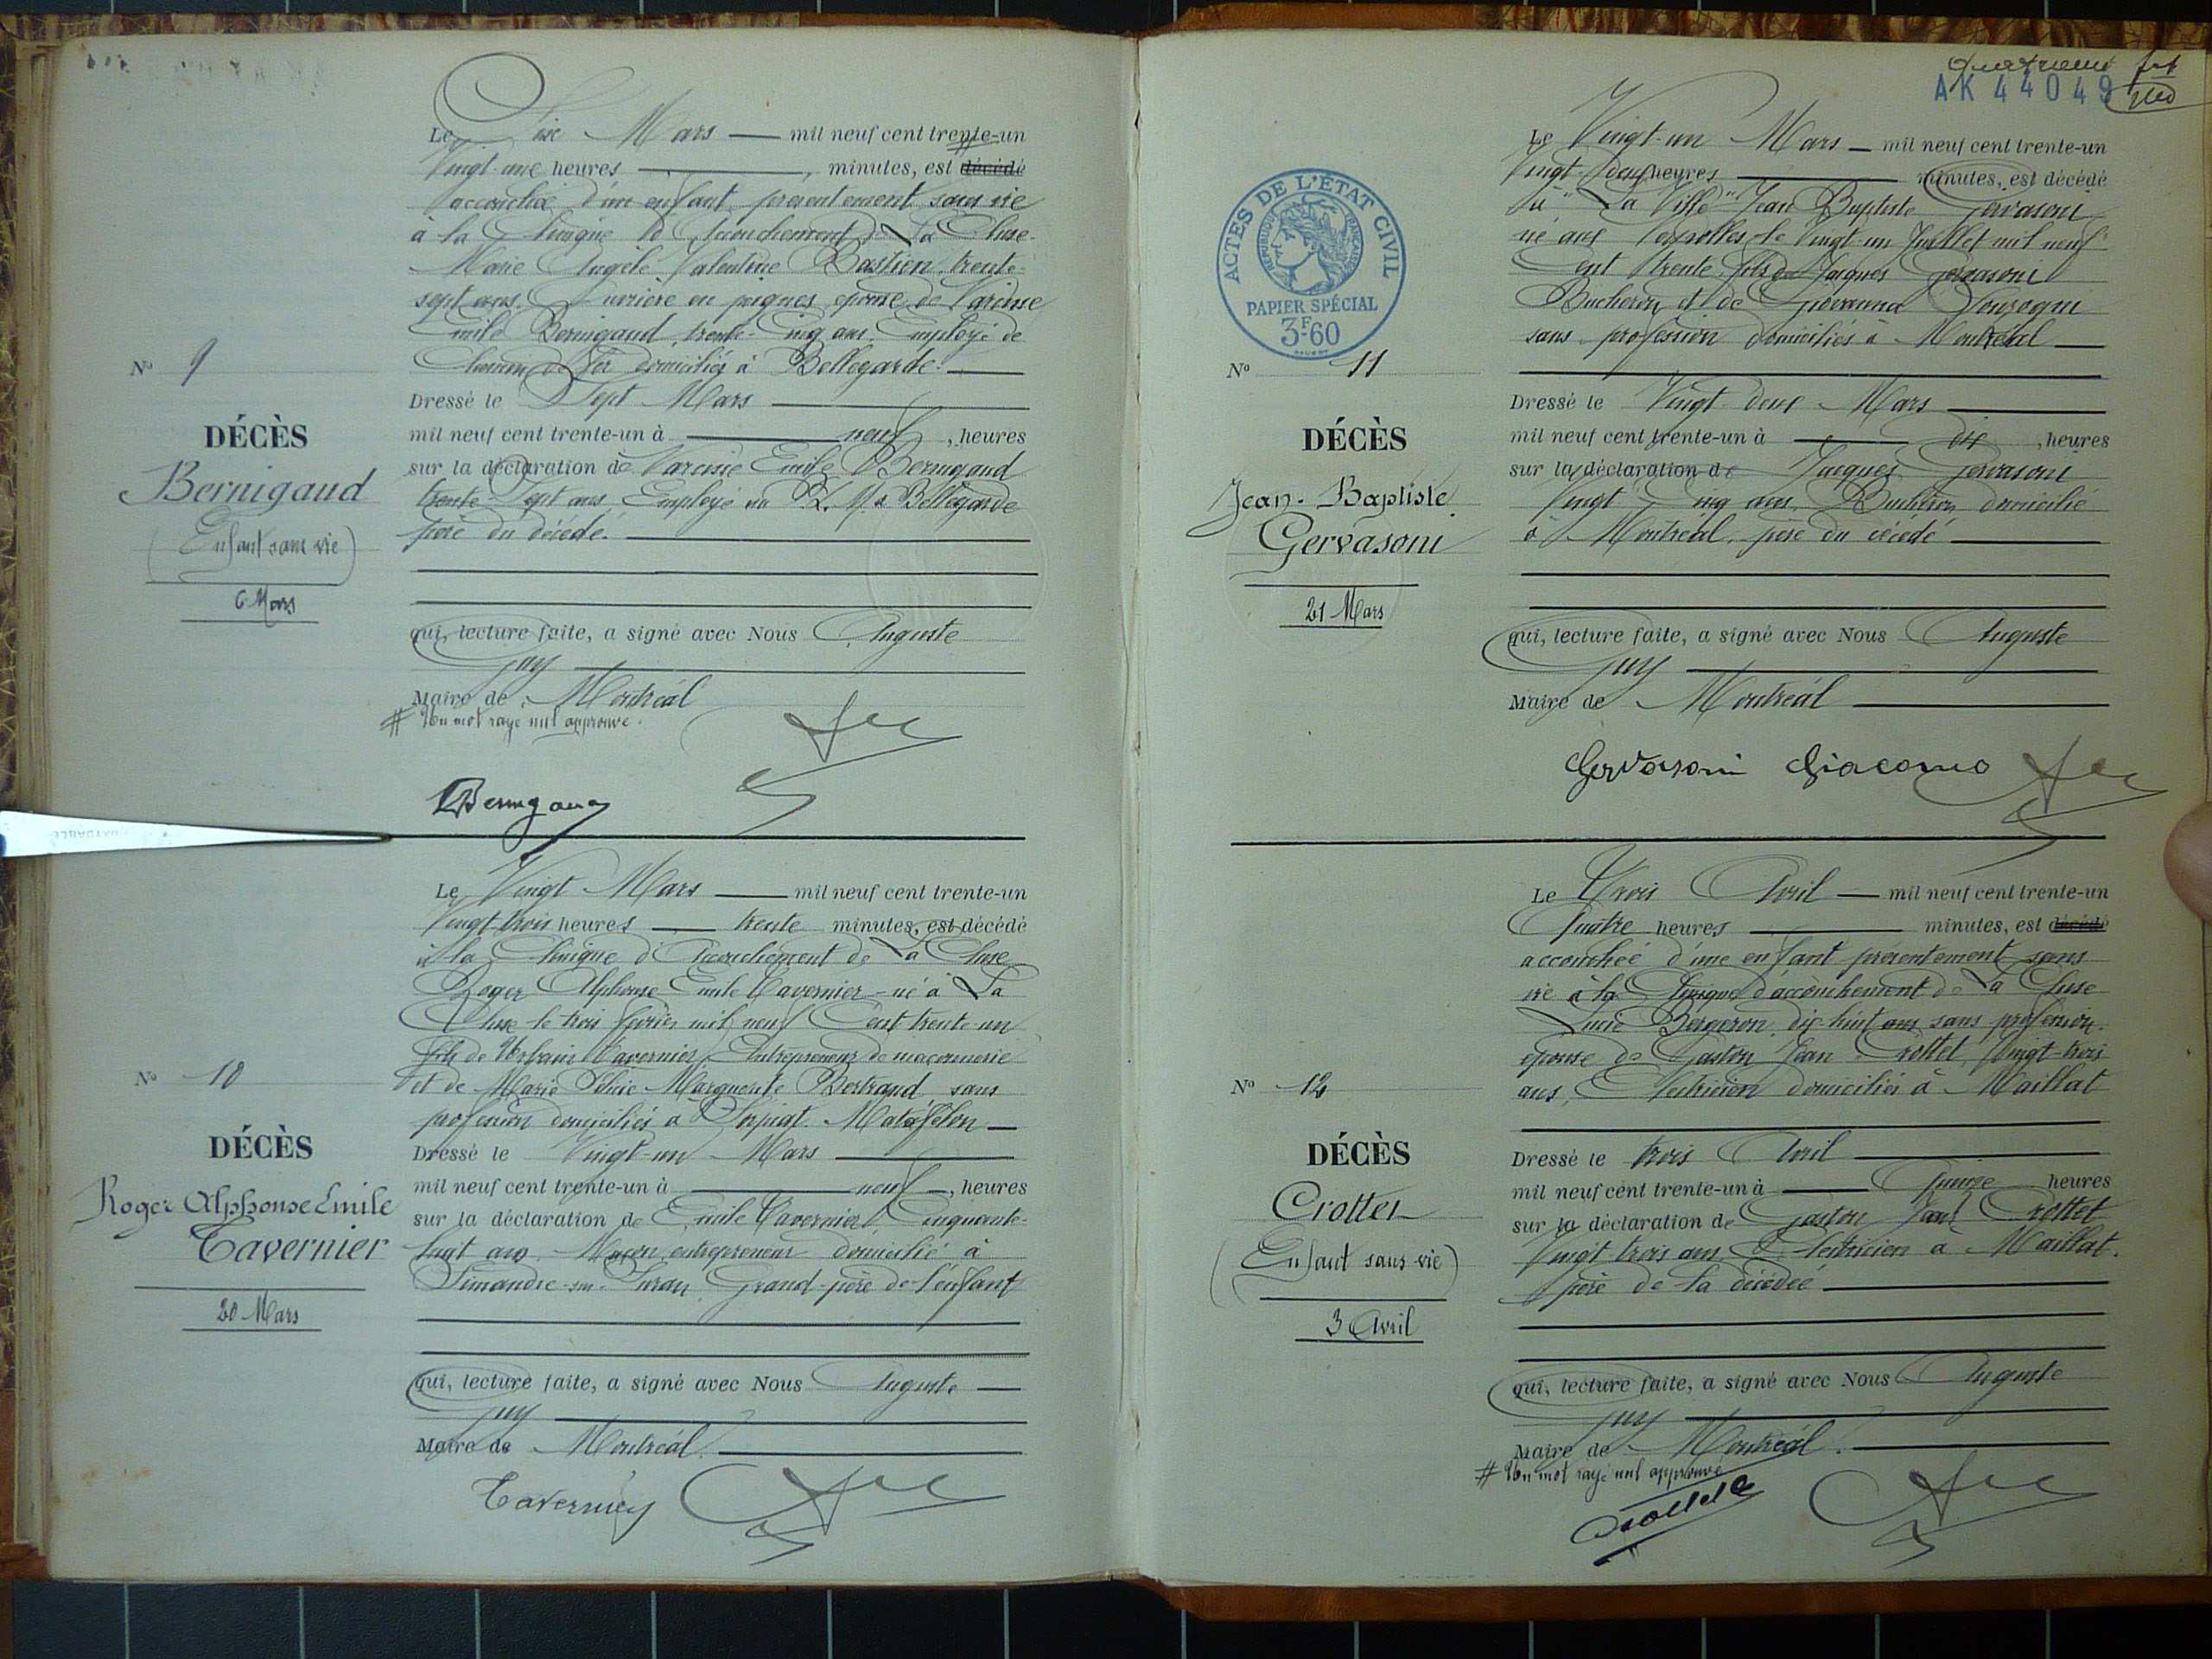 Le Six Mars — mil neuf cent trente-un
Vingt-une heures —, minutes, est décédé
accouchée d'un enfant présentement sans vie
à la Clinique d'Accouchement de La Cluse
Marie Angèle Valentine Bastien, trente-
sept ans, Ouvrière en peignes, épouse de Narcisse
Emile Bernigaud, trente-cinq ans, Employé de
Chemin de Fer domiciliés à Bellegarde. —
Nº 9
Dressé le Sept Mars —
mil neuf cent trente-un à — neuf, heures
sur la déclaration de Narcisse Emile Bernigaud
trente-sept ans, Employé au P. L. M. à Bellegarde
père du décédé. —
DÉCÈS
Bernigaud
(Enfant sans vie)
6 Mars
qui, lecture faite, a signé avec Nous Auguste
Guy —
Maire de Montréal
# Un mot rayé nul approuvé.
Bernigaud
Le Vingt Mars — mil neuf cent trente-un
Vingt-trois heures — trente minutes, est décédé
à la Clinique d'Accouchement de La Cluse
Roger Alphonse Emile Tavernier né à La
Cluse le trois février mil neuf cent trente-un
fils de Urbain Tavernier, Entrepreneur de maçonnerie
et de Marie Marguerite Bertrand, sans
profession domiciliés à Matafelon —
Nº 10
Dressé le Vingt-un Mars —
mil neuf cent trente-un à — neuf —, heures
sur la déclaration de Emile Tavernier Cinquante-
huit ans, Maçon entrepreneur domicilié à
Simandre-sur-Suran, Grand-père de l'enfant
DÉCÈS
Roger Alphonse Emile
Tavernier
20 Mars
qui, lecture faite, a signé avec Nous Auguste —
Guy —
Maire de Montréal. —
Tavernier
AK 44049
ACTES DE L'ÉTAT CIVIL
RÉPUBLIQUE FRANÇAISE
PAPIER SPÉCIAL
3F60
Le Vingt-un Mars — mil neuf cent trente-un
Vingt-deux heures — minutes, est décédé
à "La Ville" Jean Baptiste Gervasoni
né aux le Vingt-un Juillet mil neuf
cent trente, fils de Jacques Gervasoni
Bucheron et de Giovanna
sans profession domiciliés à Montréal —
Nº 11
Dressé le Vingt-deux Mars —
mil neuf cent trente-un à — dix, heures
sur la déclaration de Jacques Gervasoni
Vingt-cinq ans, Bucheron domicilié
à Montréal, père du décédé —
DÉCÈS
Jean-Baptiste
Gervasoni
21 Mars
qui, lecture faite, a signé avec Nous Auguste
Guy —
Maire de Montréal —
Gervasoni Giacomo
Le Trois Avril — mil neuf cent trente-un
Quatre heures — minutes, est décédé
accouchée d'une enfant présentement sans
vie à la Clinique d'accouchement de La Cluse
Lucie Bergeron, dix-huit ans, sans profession,
épouse de Gaston Jean Crottet, Vingt-trois
ans, Electricien domiciliés à Maillat
Nº 12
Dressé le trois Avril —
mil neuf cent trente-un à — Quinze heures
sur la déclaration de Gaston Jean Crottet
Vingt trois ans, Electricien à Maillat.
père de la décédée —
DÉCÈS
Crottet
(Enfant sans vie)
3 Avril
qui, lecture faite, a signé avec Nous Auguste
Guy —
Maire de Montréal. —
# Un mot rayé nul approuvé